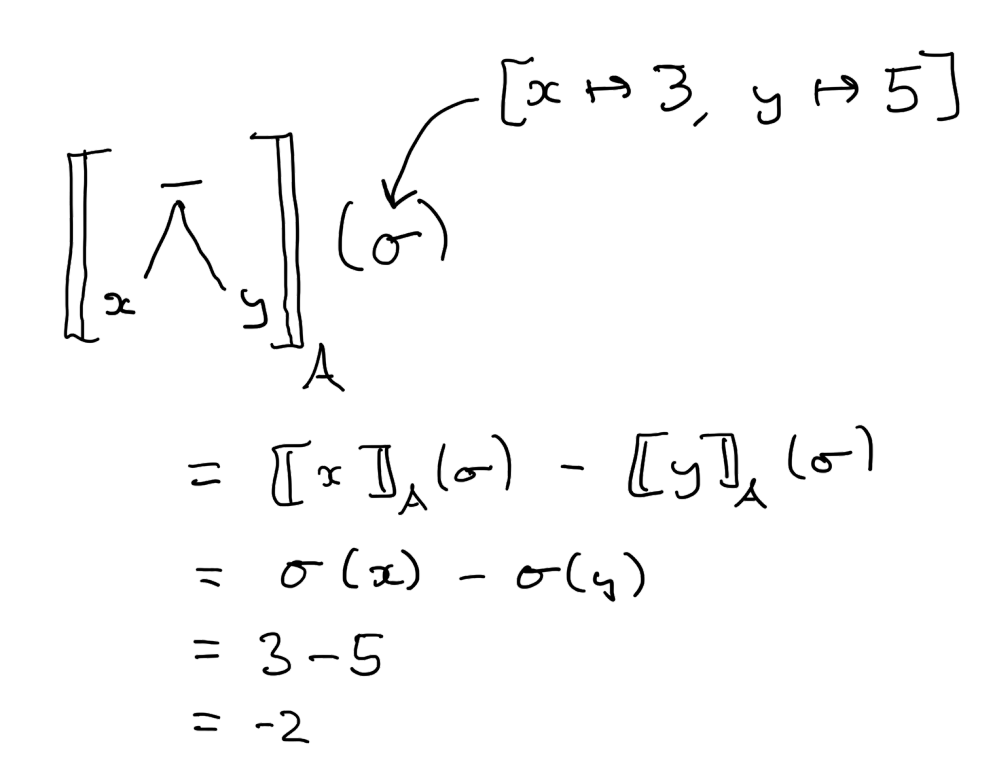 [x ↦ 3, y ↦ 5]
⟦ − x y ⟧_A (σ)
= ⟦x⟧_A (σ) − ⟦y⟧_A (σ)
= σ(x) − σ(y)
= 3 − 5
= -2